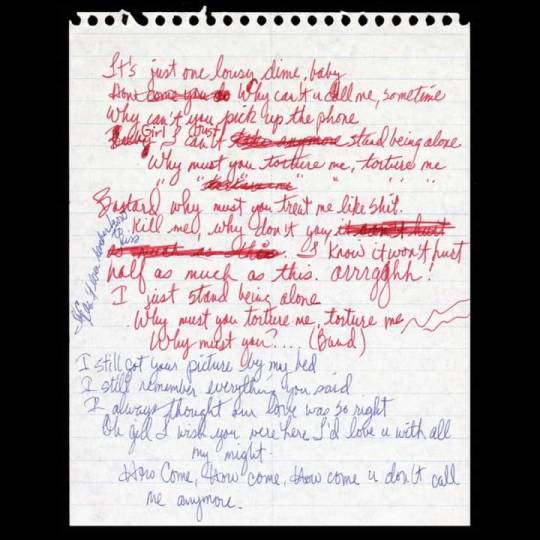 It's just one lousy dime, baby
How come you do Why can't u call me, sometime
Why can't you pick up the phone
Girl Just
Baby I can't take anymore stand being alone
Why must you torture me, torture me
" " " torture me " " " "
Bastard why must you treat me like shit.
Kill me, why don't you it don't hurt
as much as this. I know it won't hurt
half as much as this. arrrgghh!
I just stand being alone
Why must you torture me, torture me
Why must you?.... (Band)
I still got your picture by my bed
I still remember everything you said
I always thought our love was so right
Oh god I wish you were here I'd love u with all
my might.
How Come, How come, How come u don't call
me anymore.